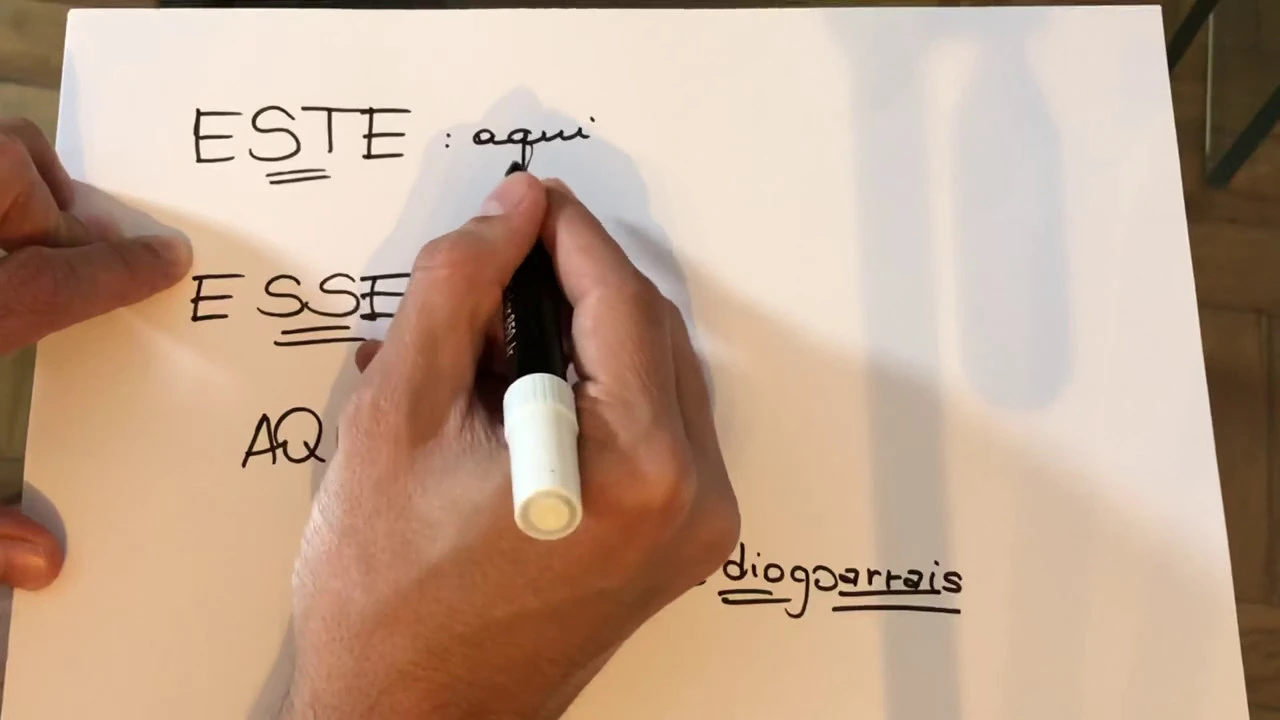 ESTE : aqui
ESSE
AQ
diogoarrais